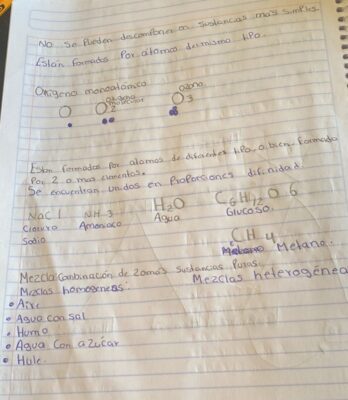 No se Pueden descomponer en sustancias mas simples.
Están formados Por átomo del mismo tipo.
Oxigeno monoatómico
O
O2 Oxigeno molecular
O3 Ozono
Están formados por atomos de diferentes tipo, o bien formado
Por 2 o mas elementos.
Se encuentran unidos en Proporciones difinidad.
NaCl NH3 H2O C6H12O6
Cloruro Sodio
Amoniaco
Agua
Glucosa.
CH4
Metano.
Mezcla: Combinación de 2 o más Sustancias Puras.
Mezclas homogeneas:
Mezclas heterogénea
• Aire
• Agua con sal
• Humo
• Agua con azucar
• Hule.